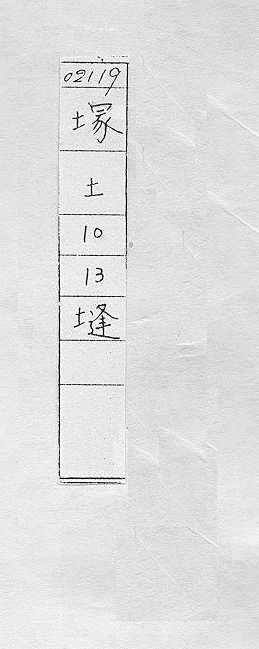 02119
塚
土
10
13
塳